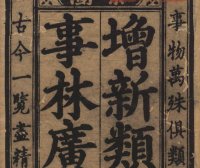 事物萬珠俱類
增新類
事林廣
古今一覧盡精